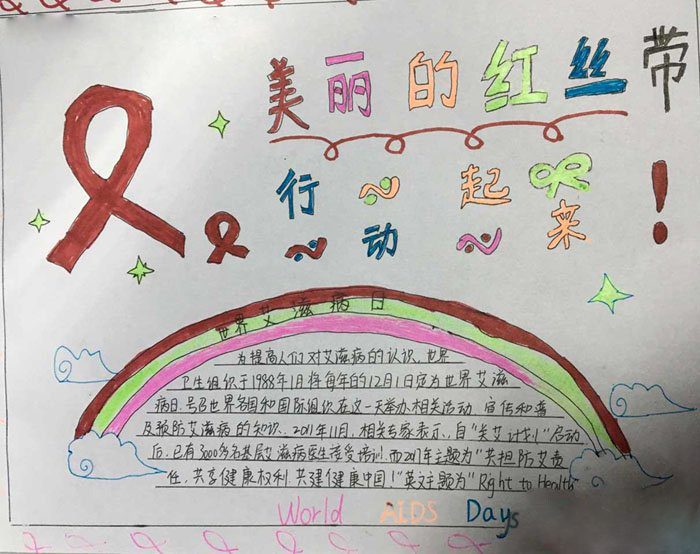 美丽的红丝带
行动起来!
世界艾滋病日
为提高人们对艾滋病的认识,世界
卫生组织于1988年1月将每年的12月1日定为世界艾滋
病日.号召世界各国和国际组织在这一天举办相关活动 宣传和普
及预防艾滋病的知识. 2011年11月,相关专家表示,自“关艾计划”启动
后,已有3000多名基层艾滋病医生接受培训.而2017年主题为“共担防艾责
任,共享健康权利,共建健康中国!”英主题为“Right to Health”
World AIDS Days